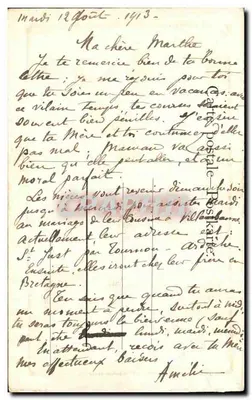 mardi 12 Août 1913.
Ma chère Marthe
Je te remercie bien de ta bonne
lettre; je me réjouis pour toi
que tu sois un peu en vacances, car
ce vilain temps, tes courses
souvent bien pénibles. J'espère
que ta Mère et toi continuez d'aller
pas mal; Maman va aussi
bien qu'elle peut aller, et a un
moral parfait.
Les nièces vont revenir dimanche soir
jusqu'
au mariage de la Cousine
Actuellement leur adresse est
St Just par Tournon Ardèche
Ensuite, elles iront chez leur
Bretagne.
Tu sais que quand tu auras
un moment à perdre, surtout à midi,
tu seras toujours la bienvenue (sauf
lundi, mardi,
En attendant, reçois avec ta Mère
mes affectueux baisers
Amélie